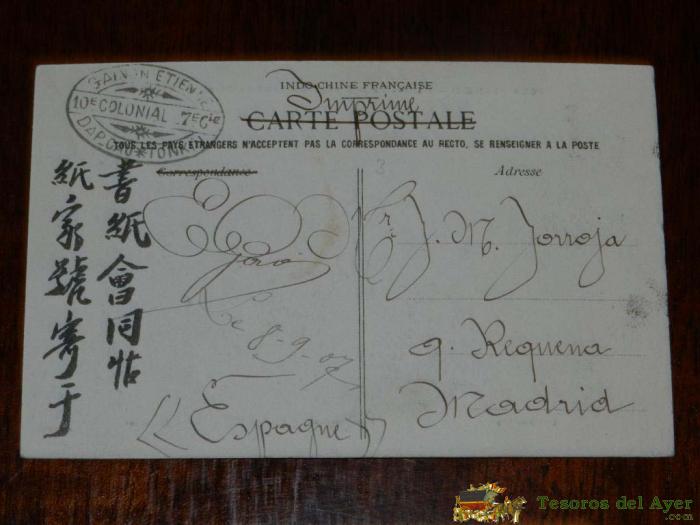 GAINON ETIENNE
10E COLONIAL 7E Cie
DAPCAU TONKIN
INDO-CHINE FRANÇAISE
Imprimé
CARTE POSTALE
TOUS LES PAYS ÉTRANGERS N'ACCEPTENT PAS LA CORRESPONDANCE AU RECTO, SE RENSEIGNER A LA POSTE
Correspondance
Adresse
書紙會同帖
紙家號寄于
Le 8-9-07
(Espagne)
Mr J. M. Jorroja
9. Requena
Madrid
Tesoros del Ayer
.com